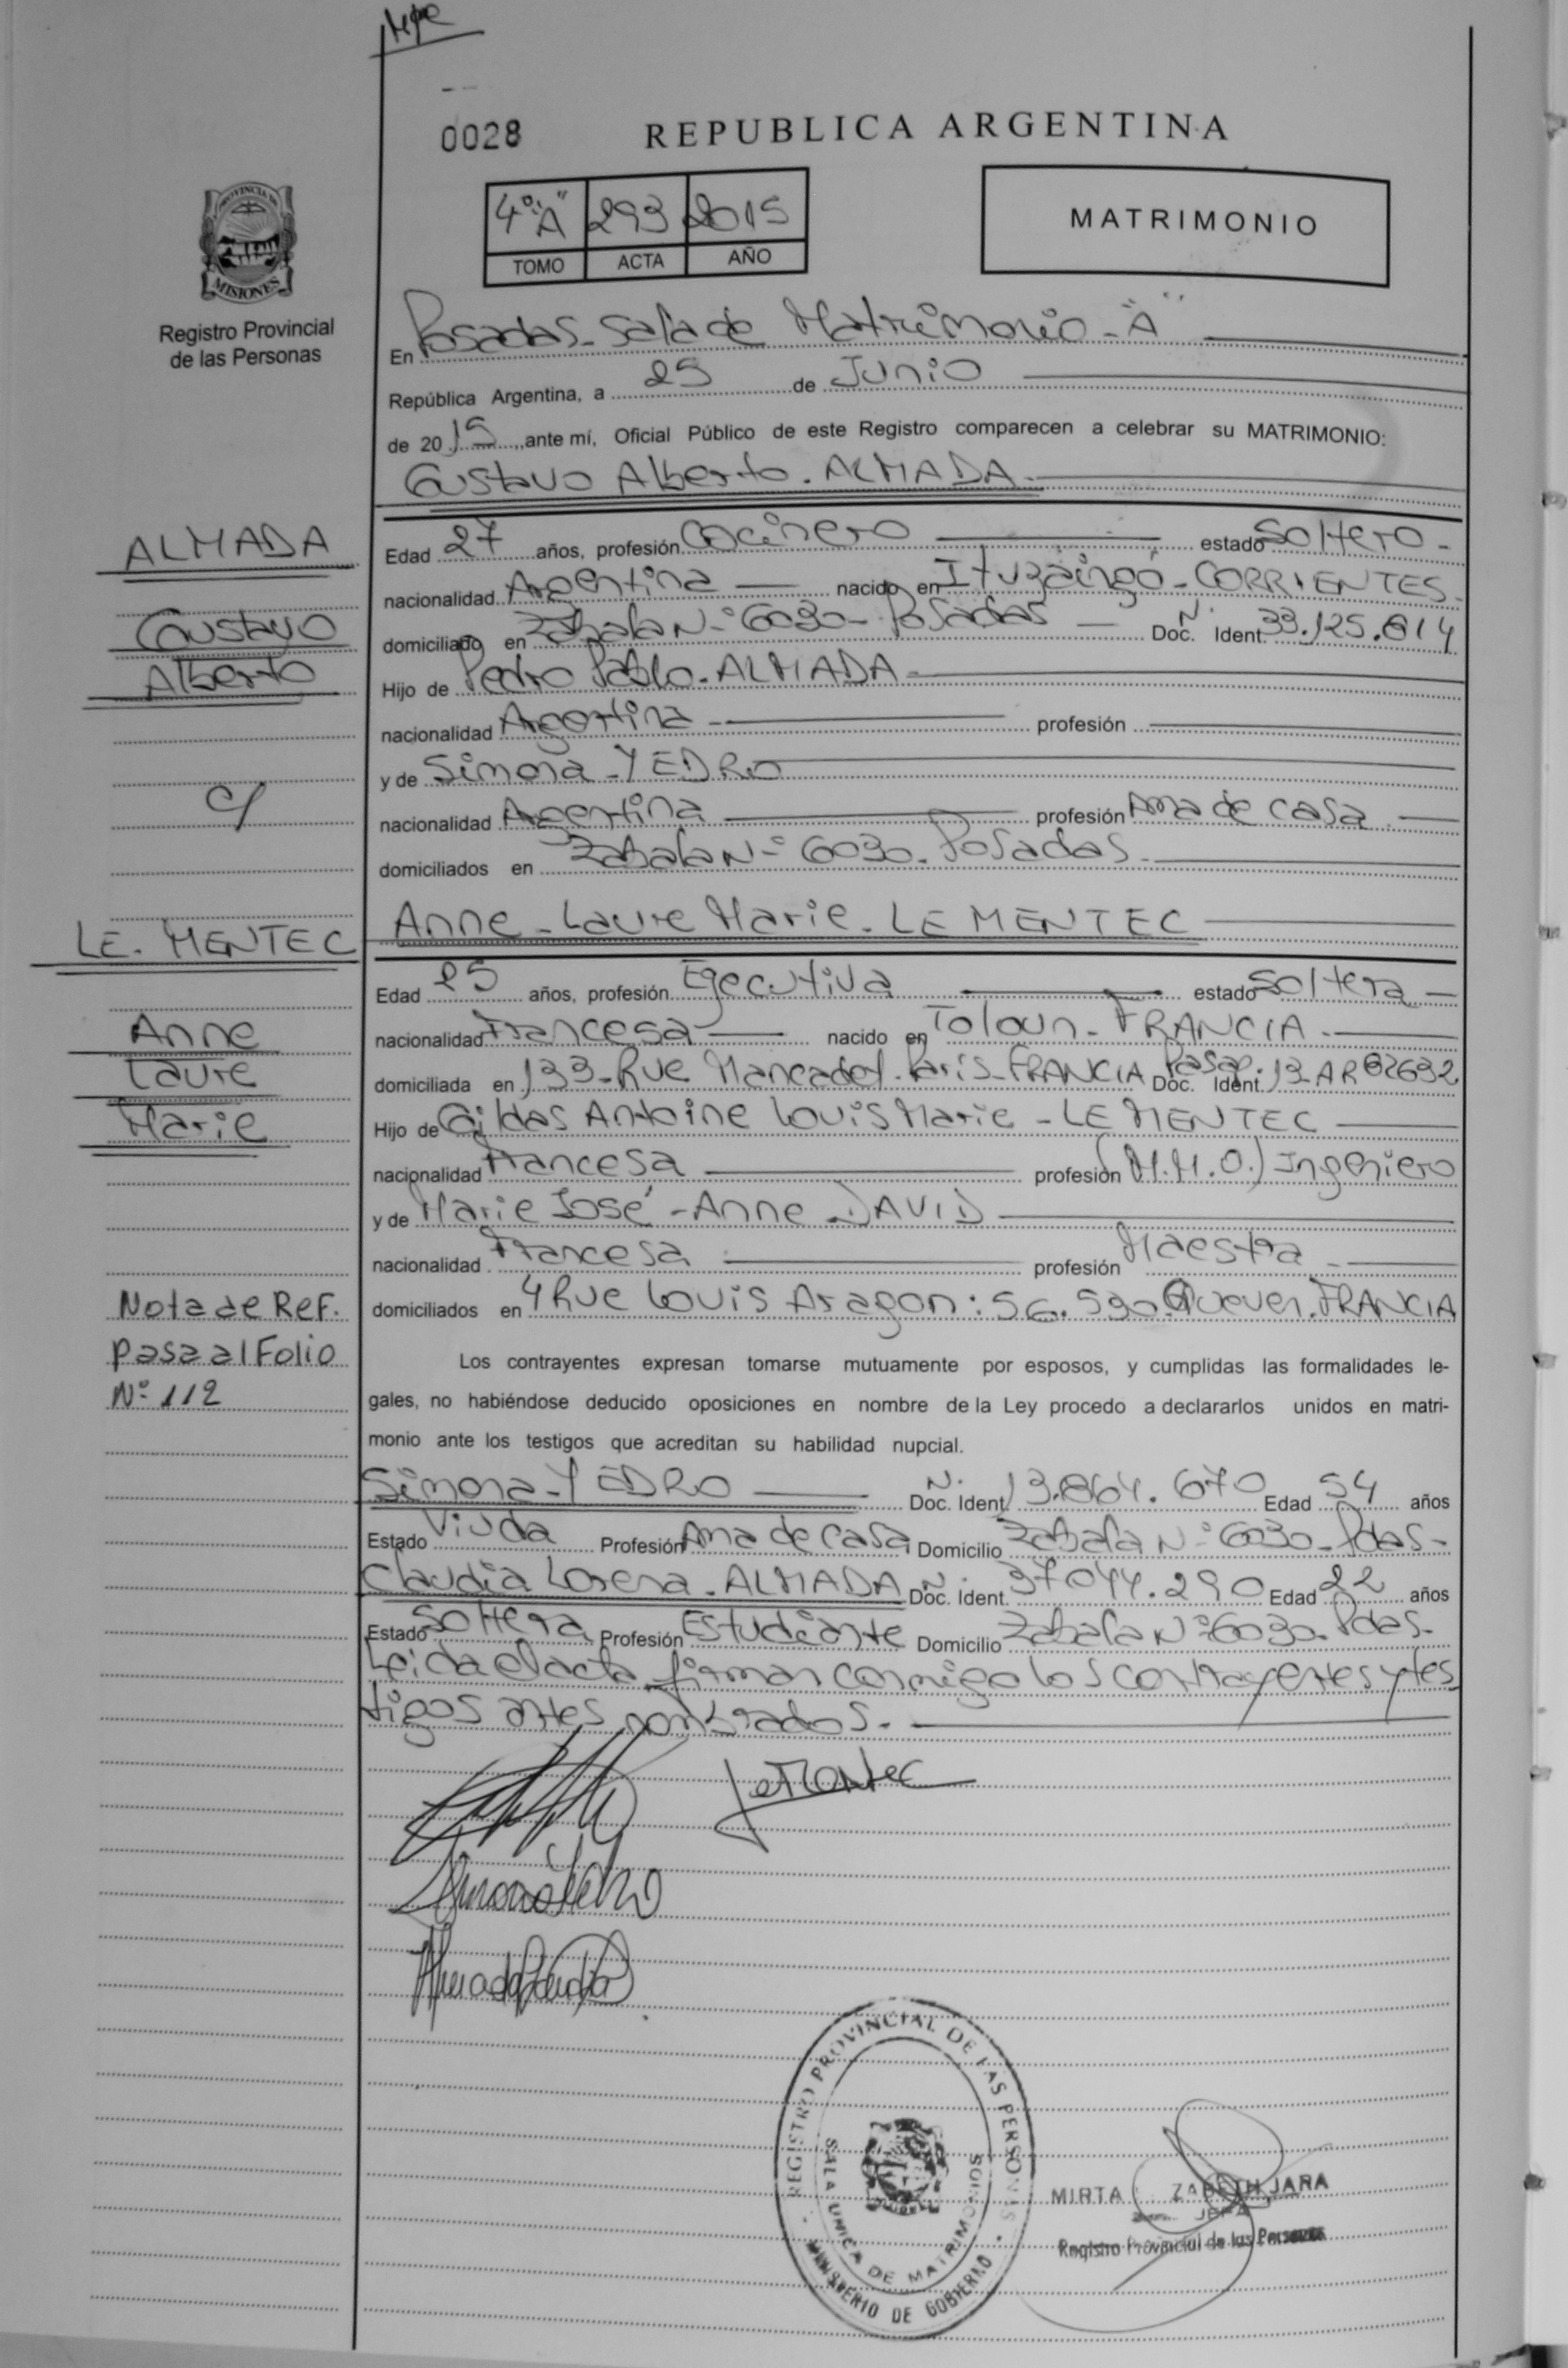 0028
REPUBLICA ARGENTINA
4º "A" 293 2015
TOMO ACTA AÑO
MATRIMONIO
PROVINCIA DE
MISIONES
Registro Provincial
de las Personas
En Posadas - Sala de Matrimonio - "A"
República Argentina, a 25 de Junio
de 2015, ante mí, Oficial Público de este Registro comparecen a celebrar su MATRIMONIO:
Gustavo Alberto. ALMADA.
ALMADA
Gustavo
Alberto
c/
LE. MENTEC
Anne
Laure
Marie
Nota de Ref.
Pasa al Folio
Nº 112
Edad 27 años, profesión Cocinero estado Soltero -
nacionalidad Argentina nacido en Ituzaingó - CORRIENTES.
domiciliado en Zabala Nº 6030 - Posadas Doc. N. Ident. 33.125.614
Hijo de Pedro Pablo. ALMADA
nacionalidad Argentina profesión
y de Simona - YEDRO
nacionalidad Argentina profesión Ama de casa.
domiciliados en Zabala Nº 6030. Posadas.
Anne - Laure Marie - LE MENTEC
Edad 25 años, profesión Ejecutiva estado Soltera
nacionalidad Francesa nacido en Toloun - FRANCIA.
domiciliada en 133 - Rue Marcadet. París - FRANCIA Doc. Pasap. Ident. 13AR62632
Hijo de Gildas Antoine Louis Marie - LE MENTEC
nacionalidad Francesa profesión (M.M.O.) Ingeniero
y de Marie José - Anne DAVID
nacionalidad Francesa profesión Maestra
domiciliados en 4 Rue Louis Aragon: 56.530. Quever. FRANCIA
Los contrayentes expresan tomarse mutuamente por esposos, y cumplidas las formalidades le-
gales, no habiéndose deducido oposiciones en nombre de la Ley procedo a declararlos unidos en matri-
monio ante los testigos que acreditan su habilidad nupcial.
Simona - YEDRO Doc. N. Ident. 13.864.670 Edad 54 años
Estado Viuda Profesión Ama de casa Domicilio Zabala Nº 6030 - Pdas -
Claudia Lorena. ALMADA Doc. N. Ident. 37.044.290 Edad 22 años
Estado Soltera Profesión Estudiante Domicilio Zabala Nº 6030. Pdas.
Leida el acta firman conmigo los contrayentes y tes
tigos antes nombrados.
Le Mentec
Simona Yedro
Almada Claudia
REGISTRO PROVINCIAL DE LAS PERSONAS
SALA UNICA DE MATRIMONIOS
MINISTERIO DE GOBIERNO
MIRTA ZABETH JARA
JEFA
Registro Provincial de las Personas